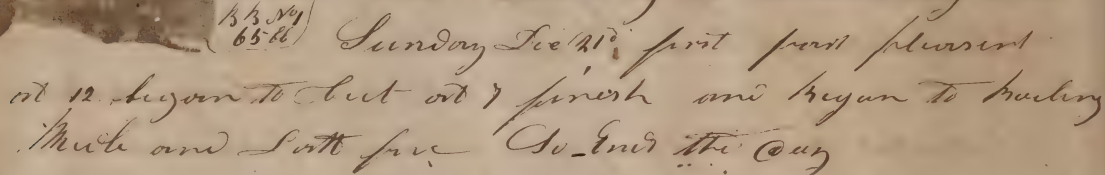 B B No 1
65 bb
Sunday Dec 21d first part pleasant
at 12 began to cut at 7 finish and began to boiling
Mule and Lott five So Ends the Day